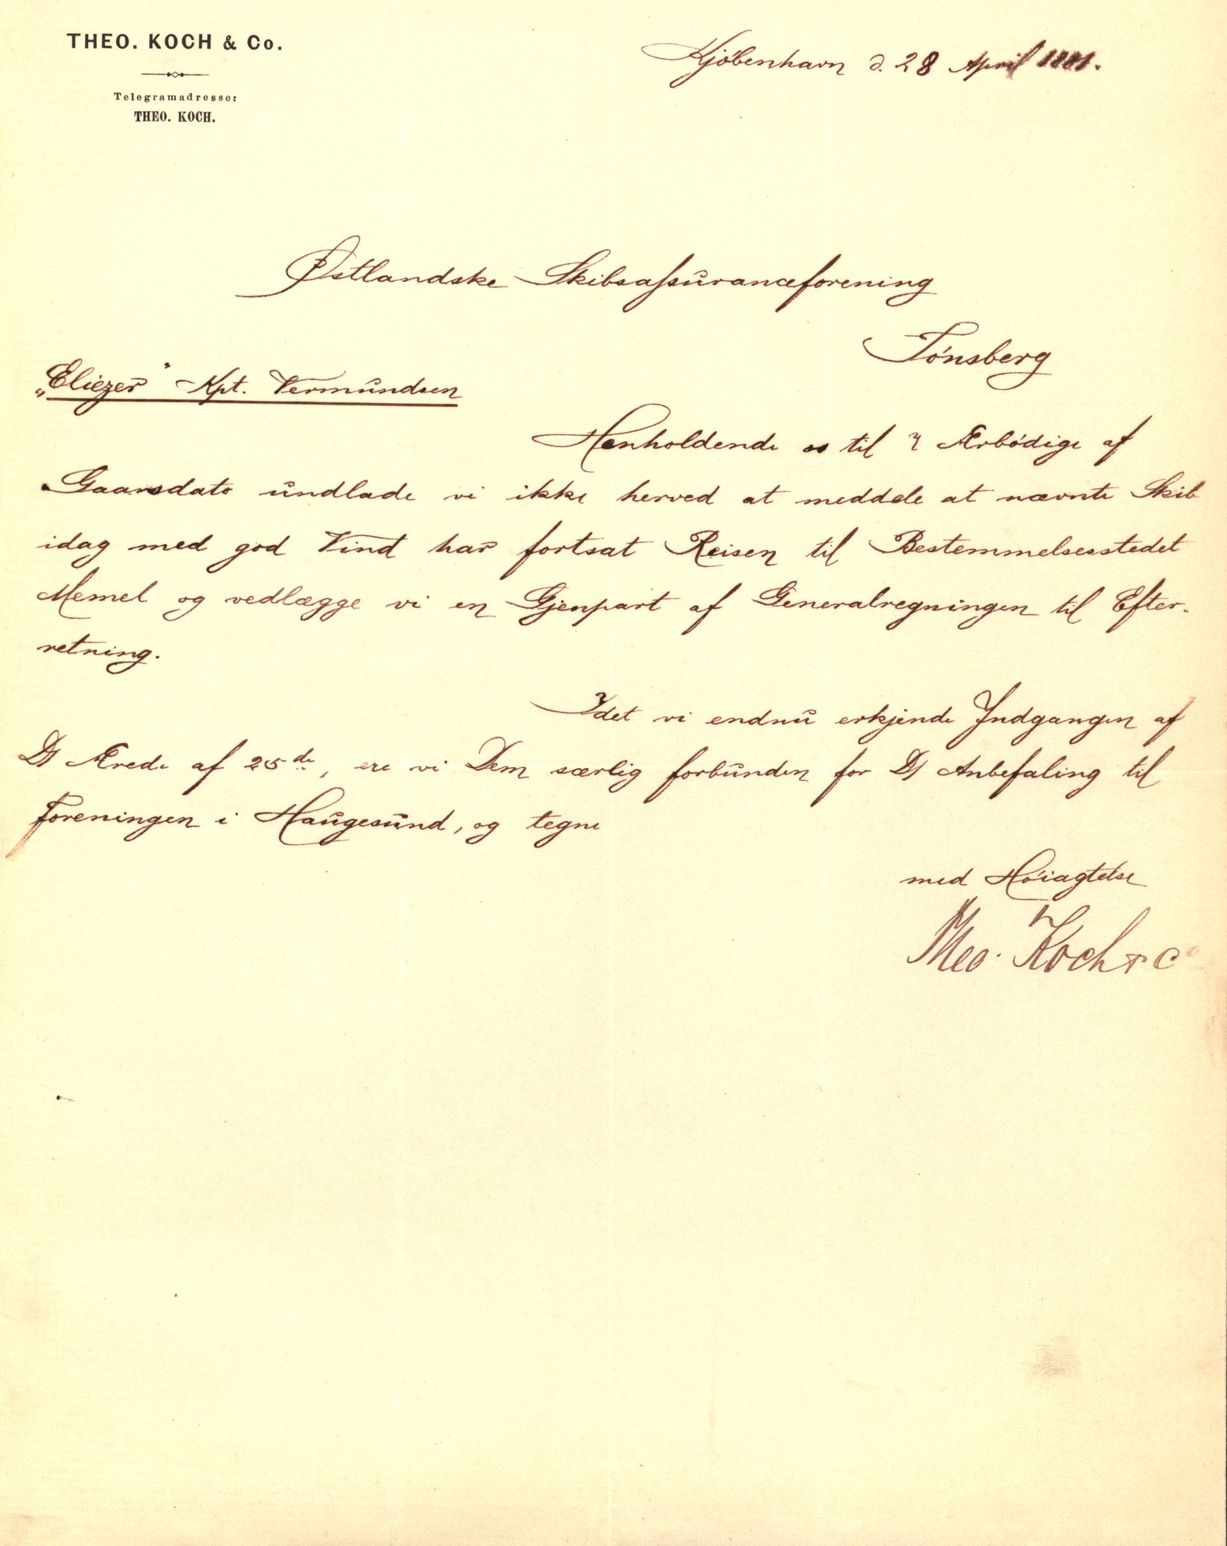 THEO. KOCH & Co.
Telegramadresse:
THEO. KOCH.
Kjöbenhavn d. 28 April
Østlandske Skibsassuranceforening
Tønsberg
„Eliezer" Kpt. Vermundsen
Henholdende os til Ærbödige af
Gaarsdato undlade vi ikke herved at meddele at nævnte Skib
idag med god Vind har fortsat Reisen til Bestemmelsesstedet
Memel og vedlægge vi en Gjenpart af Generalregningen til Efter-
retning.
Idet vi endnu erkjende Indgangen af
Ds Ærede af 25de, ere vi Dem særlig forbunden for Ds Anbefaling til
Foreningen i Haugesund, og tegne
med Höiagtelse
Theo. Koch & Co